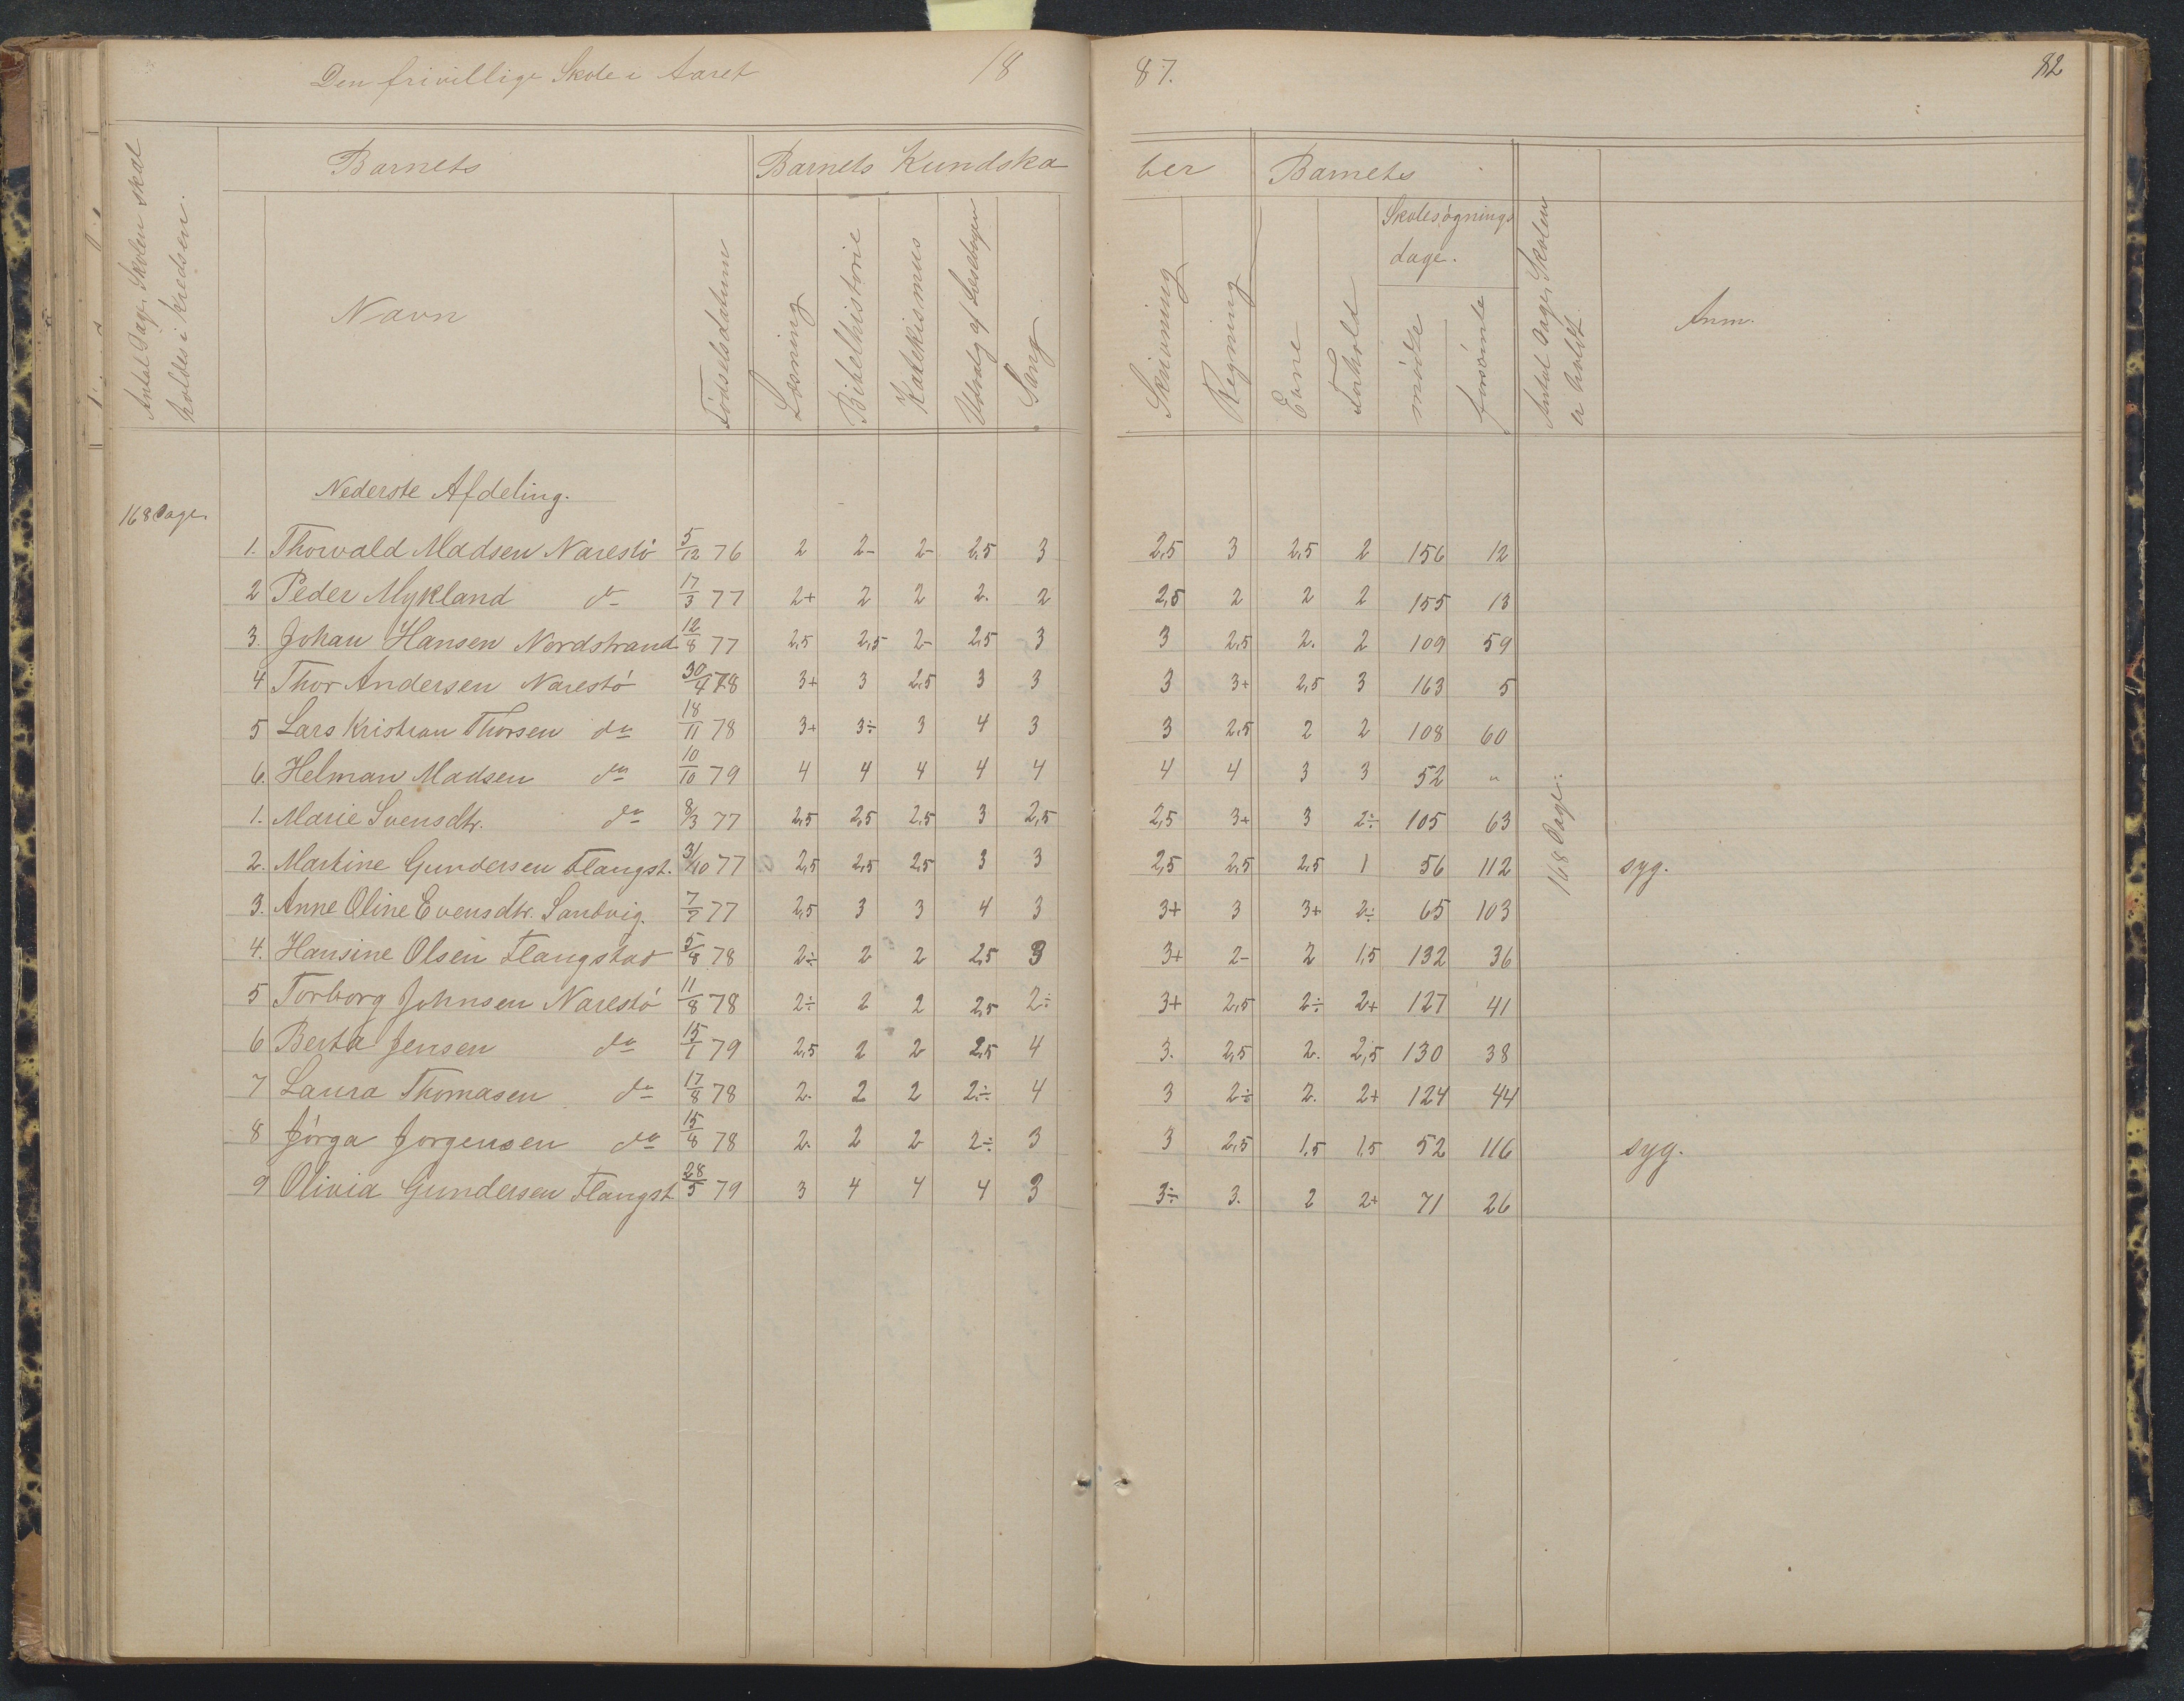 Den frivillige Skole i Aaret 1887. 82
Antal Dage, Skolen skal holdes i Kredsen.
Barnets
Barnets Kundskaber
Barnets
Navn
Fødselsdatum
Læsning
Bibelhistorie
Katekismus
Udvalg af Læsebogen
Sang
Skrivning
Regning
Evne
Forhold
Skolesøgnings
dage.
mødte
forsømte
Antal Dage, Skolen er holdt.
Anm.
Nederste Afdeling.
168 Dage.
1. Thorvald Madsen Narestø 5/12 76 2 2- 2- 2,5 3 2,5 3 2,5 2 156 12
2 Peder Mykland do 17/3 77 2+ 2 2 2. 2 2,5 2 2 2 155 13
3. Johan Hansen Nordstrand 12/8 77 2,5 2,5 2- 2,5 3 3 2,5 2. 2 109 59
4 Thor Andersen Narestø 30/4 78 3+ 3 2,5 3 3 3 3+ 2,5 3 163 5
5 Lars Kristian Thorsen do 18/11 78 3+ 3÷ 3 4 3 3 2,5 2 2 108 60
6. Helman Madsen do 10/10 79 4 4 4 4 4 4 4 3 3 52 "
1. Marie Svensdtr. do 8/3 77 2,5 2,5 2,5 3 2,5 2,5 3+ 3 2÷ 105 63
168 Dage.
2. Martine Gundersen Flangst. 31/10 77 2,5 2,5 2,5 3 3 2,5 2,5 2,5 1 56 112 syg.
3. Anne Oline Evensdtr. Sandvig. 7/7 77 2,5 3 3 4 3 3+ 3 3+ 2÷ 65 103
4. Hansine Olsen Flangstad 5/8 78 2÷ 2 2 2,5 3 3+ 2- 2 1,5 132 36
5 Torborg Johnsen Narestø 11/8 78 2÷ 2 2 2,5 2÷ 3+ 2,5 2÷ 2+ 127 41
6 Berta Jensen do 15/1 79 2,5 2 2 2,5 4 3. 2,5 2. 2,5 130 38
7 Laura Thomasen do 17/8 78 2. 2 2 2÷ 4 3 2÷ 2. 2+ 124 44
8 Jørga Jørgensen do 15/8 78 2. 2 2 2÷ 3 3 2,5 1,5 1,5 52 116 syg.
9 Olivia Gundersen Flangst 28/5 79 3 4 4 4 3 3÷ 3. 2 2+ 71 26